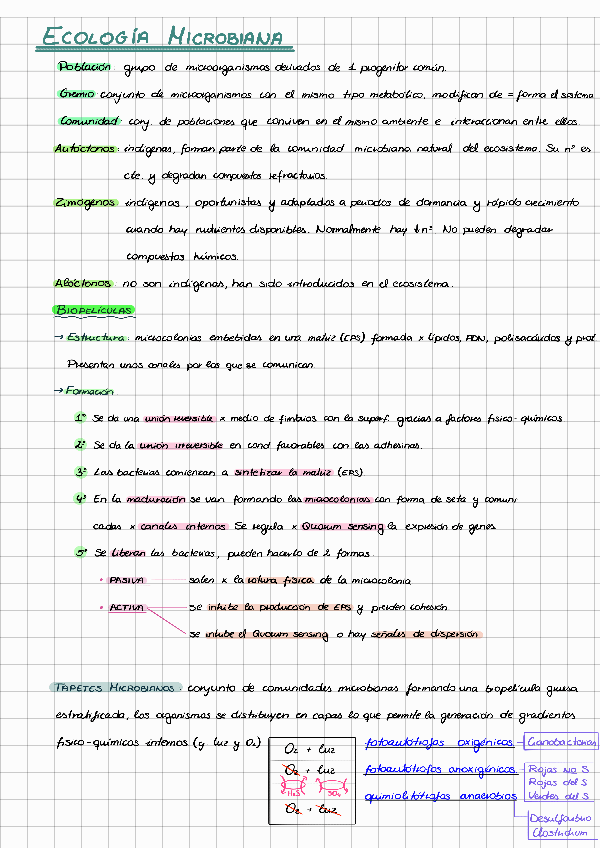 ECOLOGÍA MICROBIANA
Población: grupo de microorganismos derivados de 1 progenitor común.
Gremio: conjunto de microorganismos con el mismo tipo metabólico, modifican de = forma el sistema
Comunidad: conj. de poblaciones que conviven en el mismo ambiente e interaccionan entre ellos.
Autóctonos: indígenas, forman parte de la comunidad microbiana natural del ecosistema. Su nº es
cte. y degradan compuestos refractarios.
Zimógenos: indígenas, oportunistas y adaptados a periodos de dormancia y rápido crecimiento
cuando hay nutrientes disponibles. Normalmente hay ↓nº. No pueden degradar
compuestos húmicos.
Alóctonos: no son indígenas, han sido introducidos en el ecosistema.
BIOPELÍCULAS
→ Estructura: microcolonias embebidas en una matriz (EPS) formada x lípidos, ADN, polisacáridos y prot.
Presentan unos canales por los que se comunican
→ Formación
1º Se da una unión reversible x medio de fimbrias con la superf. gracias a factores físico-químicos
2º Se da la unión irreversible en cond favorables con las adhesinas.
3º Las bacterias comienzan a sintetizar la matriz (EPS)
4º En la maduración se van formando las microcolonias con forma de seta y comuni
cadas x canales internos Se regula x Quorum sensing la expresión de genes
5º Se liberan las bacterias, pueden hacerlo de 2 formas.
• PASIVA salen x la rotura física de la microcolonia
• ACTIVA se inhibe la producción de EPS y pierden cohesión
se inhibe el Quorum sensing o hay señales de dispersión
TAPETES MICROBIANOS: conjunto de comunidades microbianas formando una biopelícula gruesa
estratificada, los organismos se distribuyen en capas lo que permite la generación de gradientes
físico-químicos internos (y luz y O₂)
O₂ + luz fotoautótrofos oxigénicos Cianobacterias
O₂ + luz fotoautótrofos anoxigénicos Rojas no S
H₂S SO₄ Rojas del S
quimiolitótrofos anaerobios Verdes del S
O₂ + luz
Desulfovibrio
Clostridium